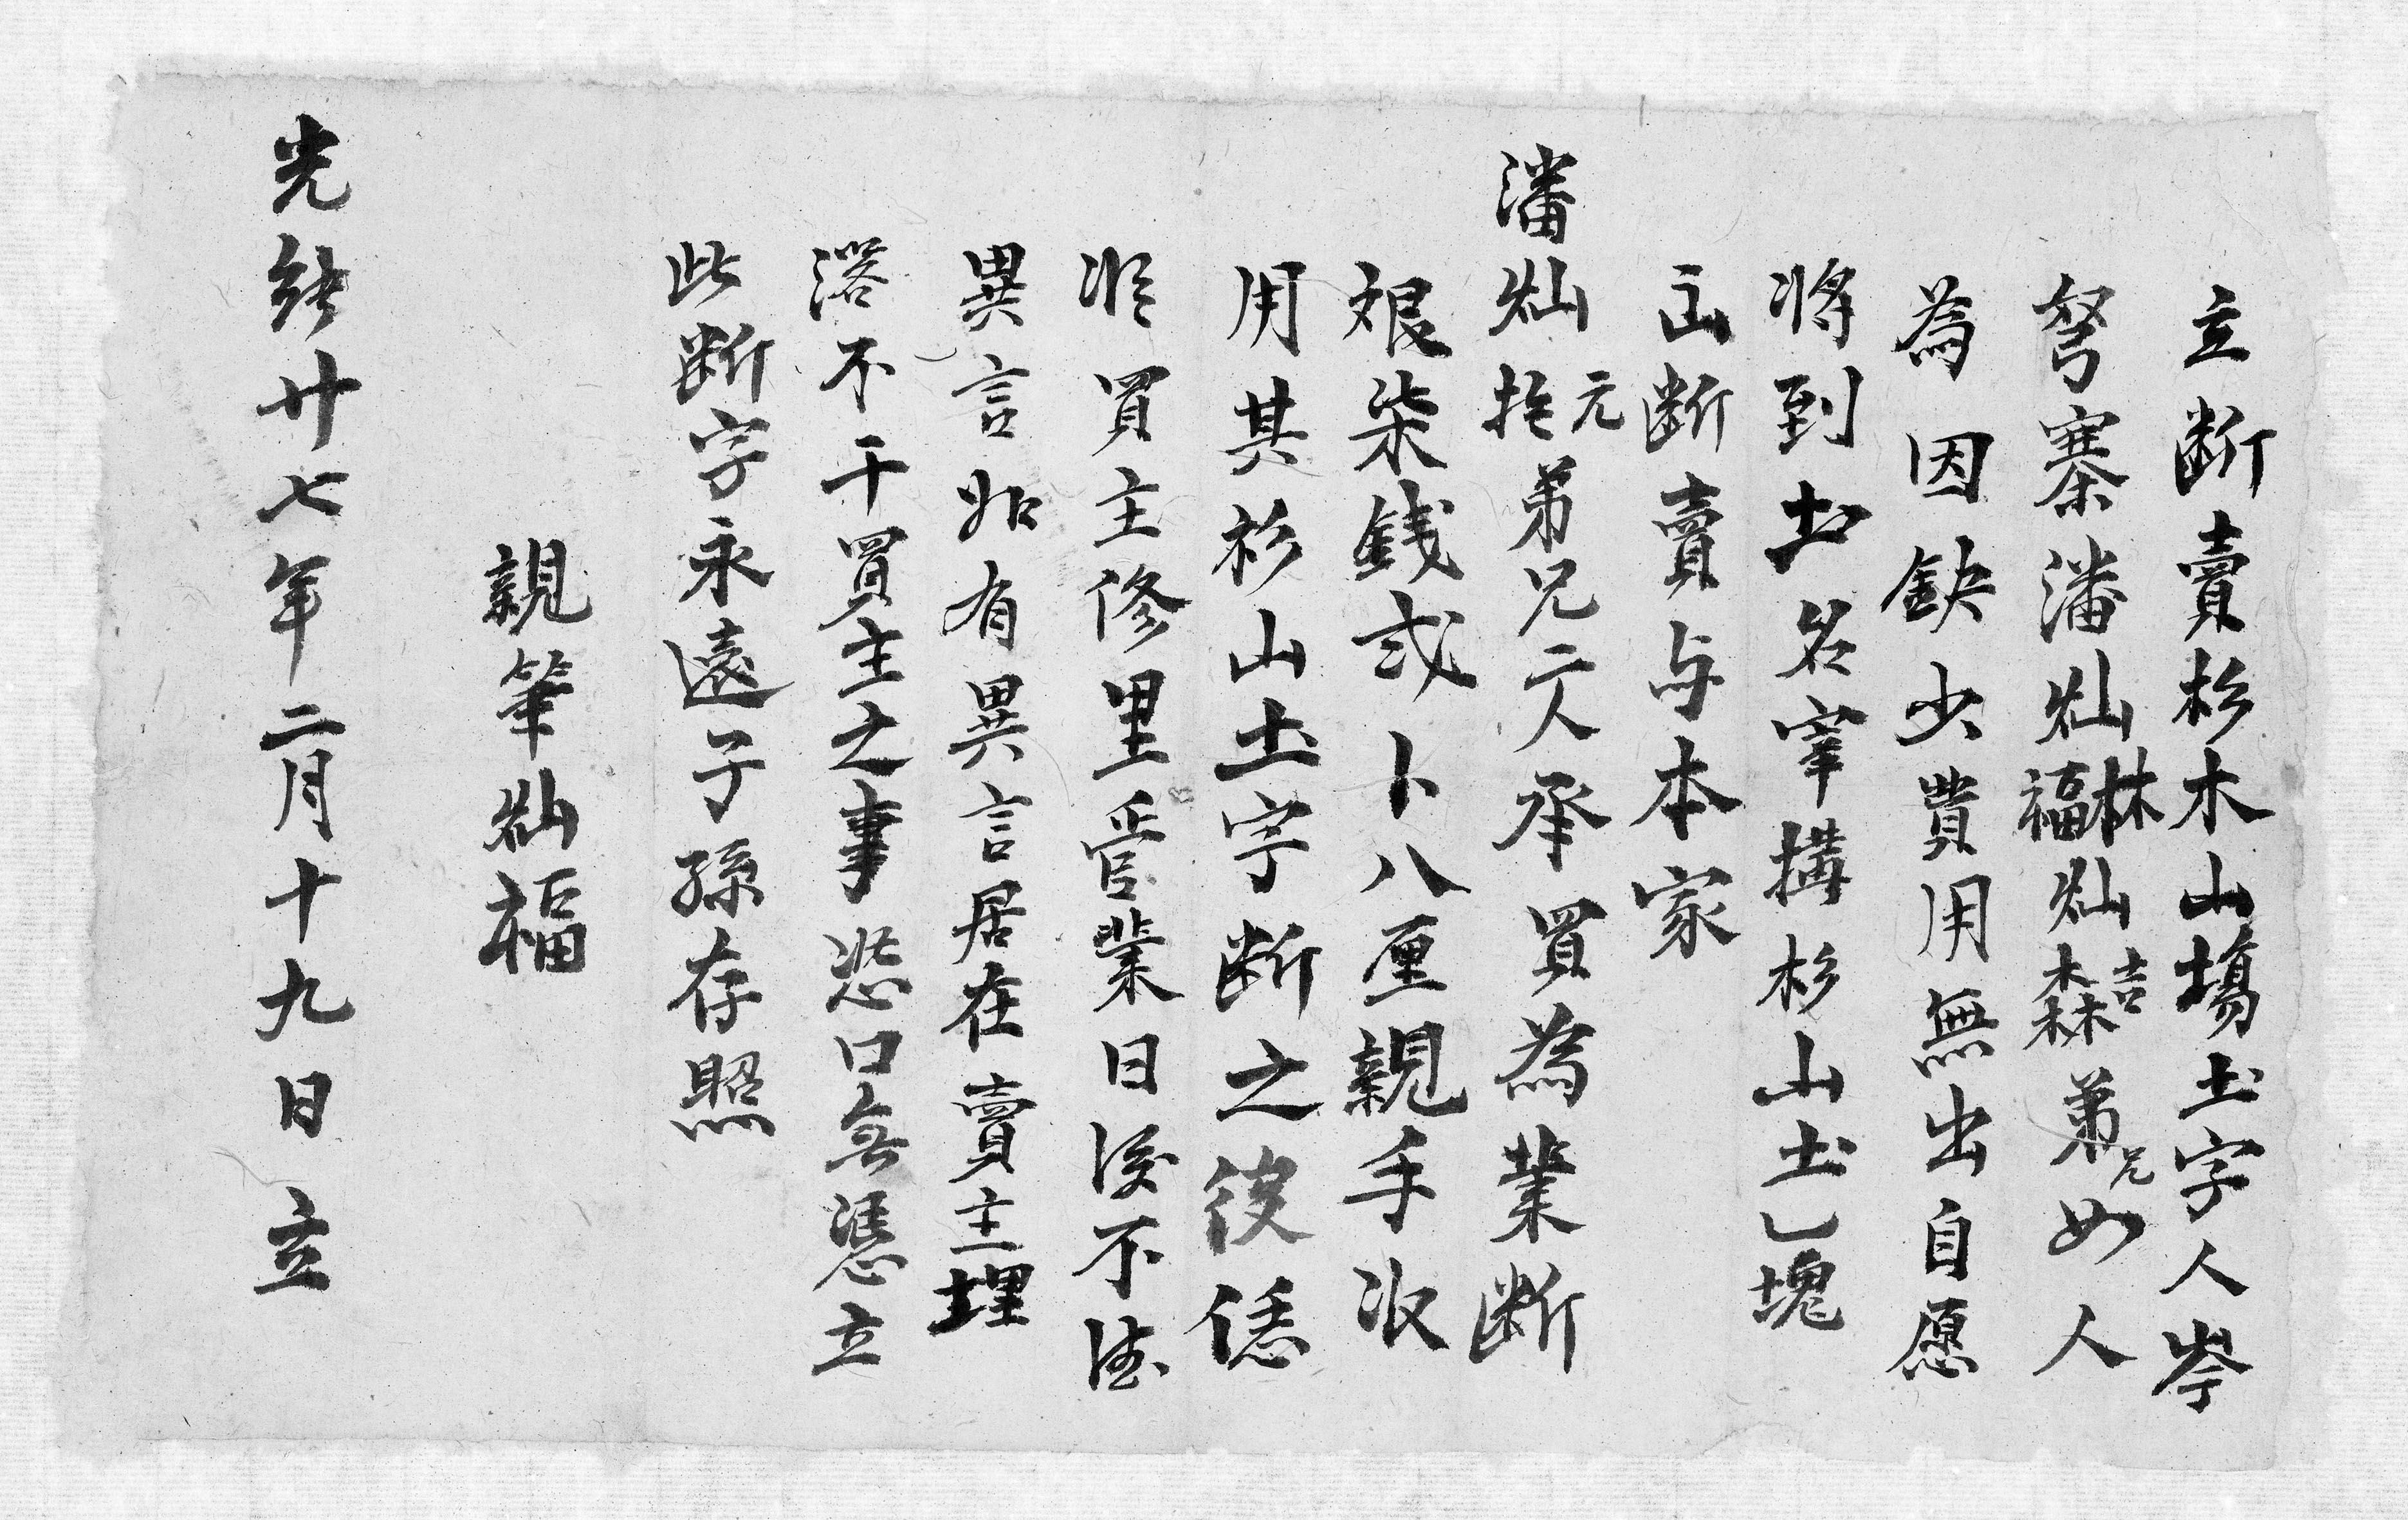 立断賣杉木山塲土字人岑
弩寨潘灿林福灿吉森弟兄四人
為因缺少費用無出自愿
將到土名宰搆杉山土乙塊
出断賣与本家
潘灿元拒弟兄二人承買為業断
艮柒錢弍卜八厘親手收
用其杉山土字断之後恁
凴買主修里管業日後不得
異言如有異言居在賣主埋
落不干買主之事恐口無憑立
此断字永遠子孫存照
親筆灿福
光緒廿七年二月十九日立